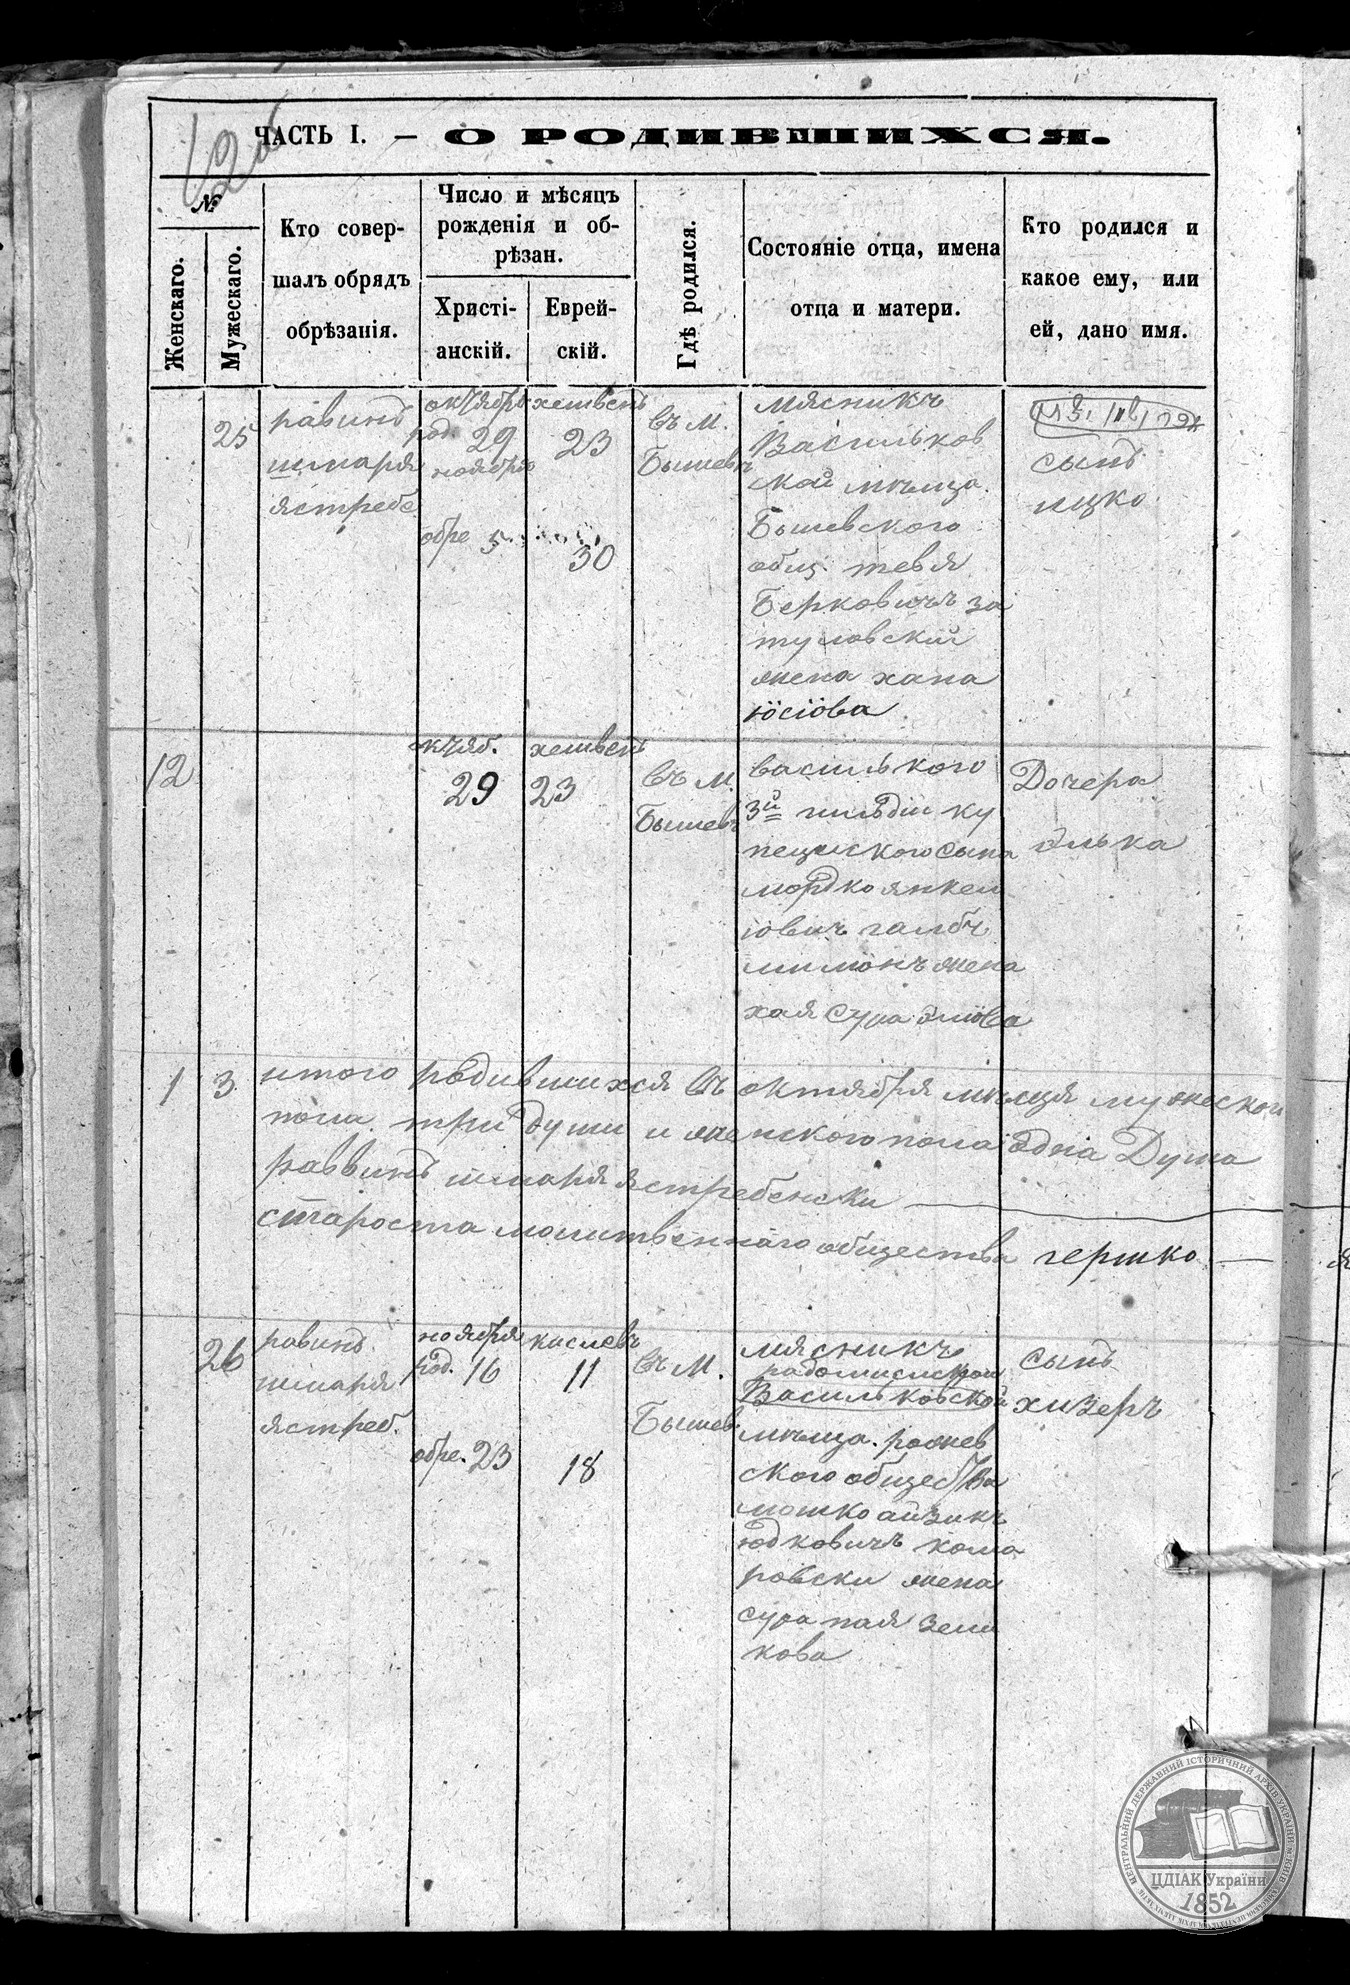 ЧАСТЬ I. — О РОДИВШИХСЯ.
№
Женскаго.
Мужескаго.
Кто совер-
шалъ обрядъ
обрѣзанія.
Число и мѣсяцъ
рожденія и об-
рѣзан.
Христі-
анскій.
Еврей-
скій.
Гдѣ родился.
Состояніе отца, имена
отца и матери.
Кто родился и
какое ему, или
ей, дано имя.
25
равинъ
шмаря
ястребс
октября
род. 29
ноября
обре 5
хешвенъ
23
30
въ м.
Бышевъ
мясникъ
Васильков
Бышевского
общ. тевя
Берковичъ за
туловский
жена хана
юсіова
сынъ
ицко
12
октяб.
29
хешвенъ
23
въ м.
Бышевъ
василького
3й гильдіи ку
печеского сына
мордко янкел
іовичъ галбч
жена
хая сура
Дочера
элька
1 3 итого родившихся въ октября мѣсяця мужеского
пола три души и женского пола одна Душа
раввинъ шмаря ястребенски
староста молитвенного общества гершко
26
равинъ
шмаря
ястреб.
ноября
род. 16
обре. 23
кислевъ
11
18
въ м.
Бышев
мясникъ
радомислской
Васильковской
ского общества
мошко айзикъ
юдковичъ кома
ровски жена
сура пая Зели
кова
сынъ
хизеръ
ЦЕНТРАЛЬНИЙ ДЕРЖАВНИЙ ІСТОРИЧНИЙ АРХІВ УКРАЇНИ
ЦДІАК України
1852